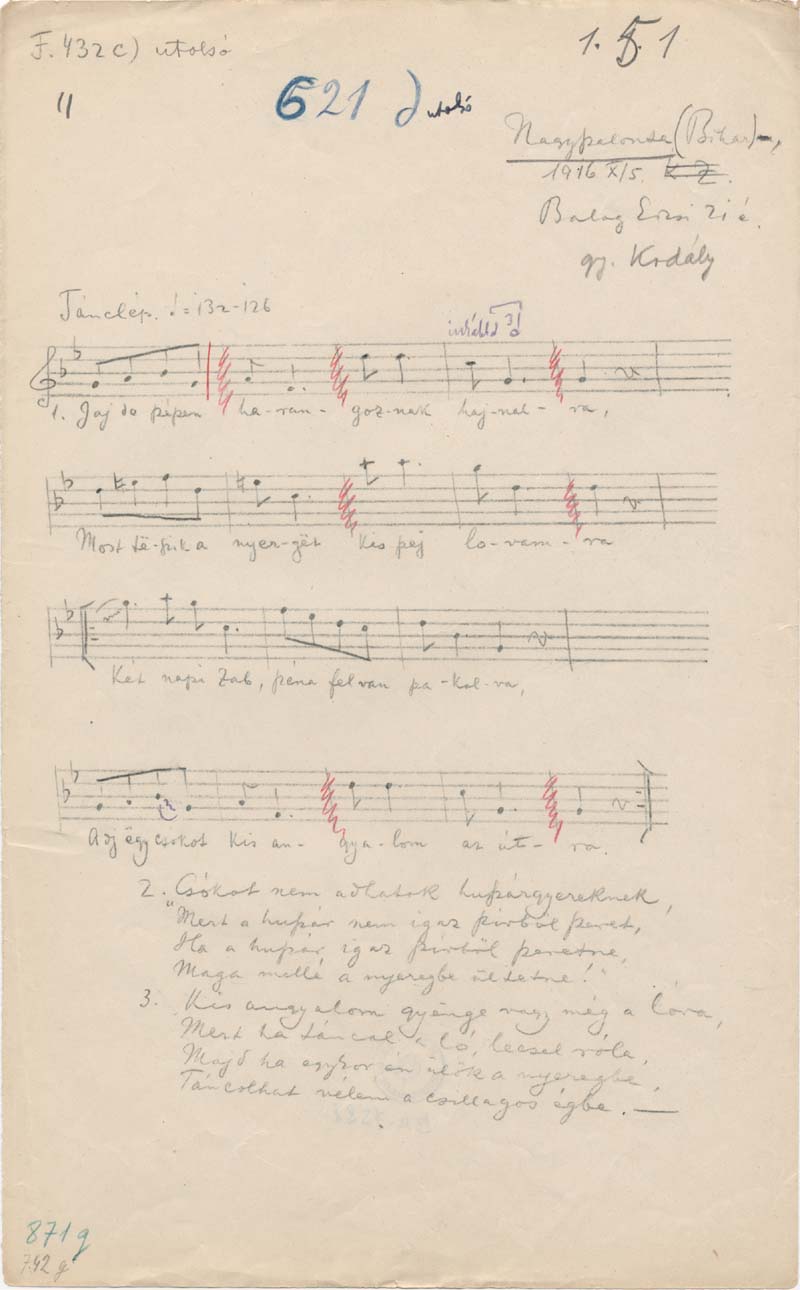 F. 432 c) utolsó
1. 5. 1
621 d utolsó
Nagyszalonta (Bihar)
1916 XI/5. K. Z.
Balog Erzsi 21 é.
gy. Kodály
Tánclép. = 132-126
3
1. Jaj de szépen ha-ran- goz-nak haj-nal- ra,
Most të-szik a nyer-gët kis pej lo-vam-ra
Két napi zab, széna felvan pa-kol-va,
Adj ëgy csókot kis an- gya-lom az út- ra.
2. Csókot nem adhatok huszárgyereknek,
"Mert a huszár nem igaz szivből szeret,
Ha a huszár igaz szivből szeretne,
Maga mellé a nyeregbe ültetne!"
3. Kis angyalom gyënge vagy még a lóra,
Mert ha táncal a ló, leesel róla,
Majd ha egykor én ülök a nyeregbe,
Táncolhat vélem a csillagos égbe. —
871 g
742 g